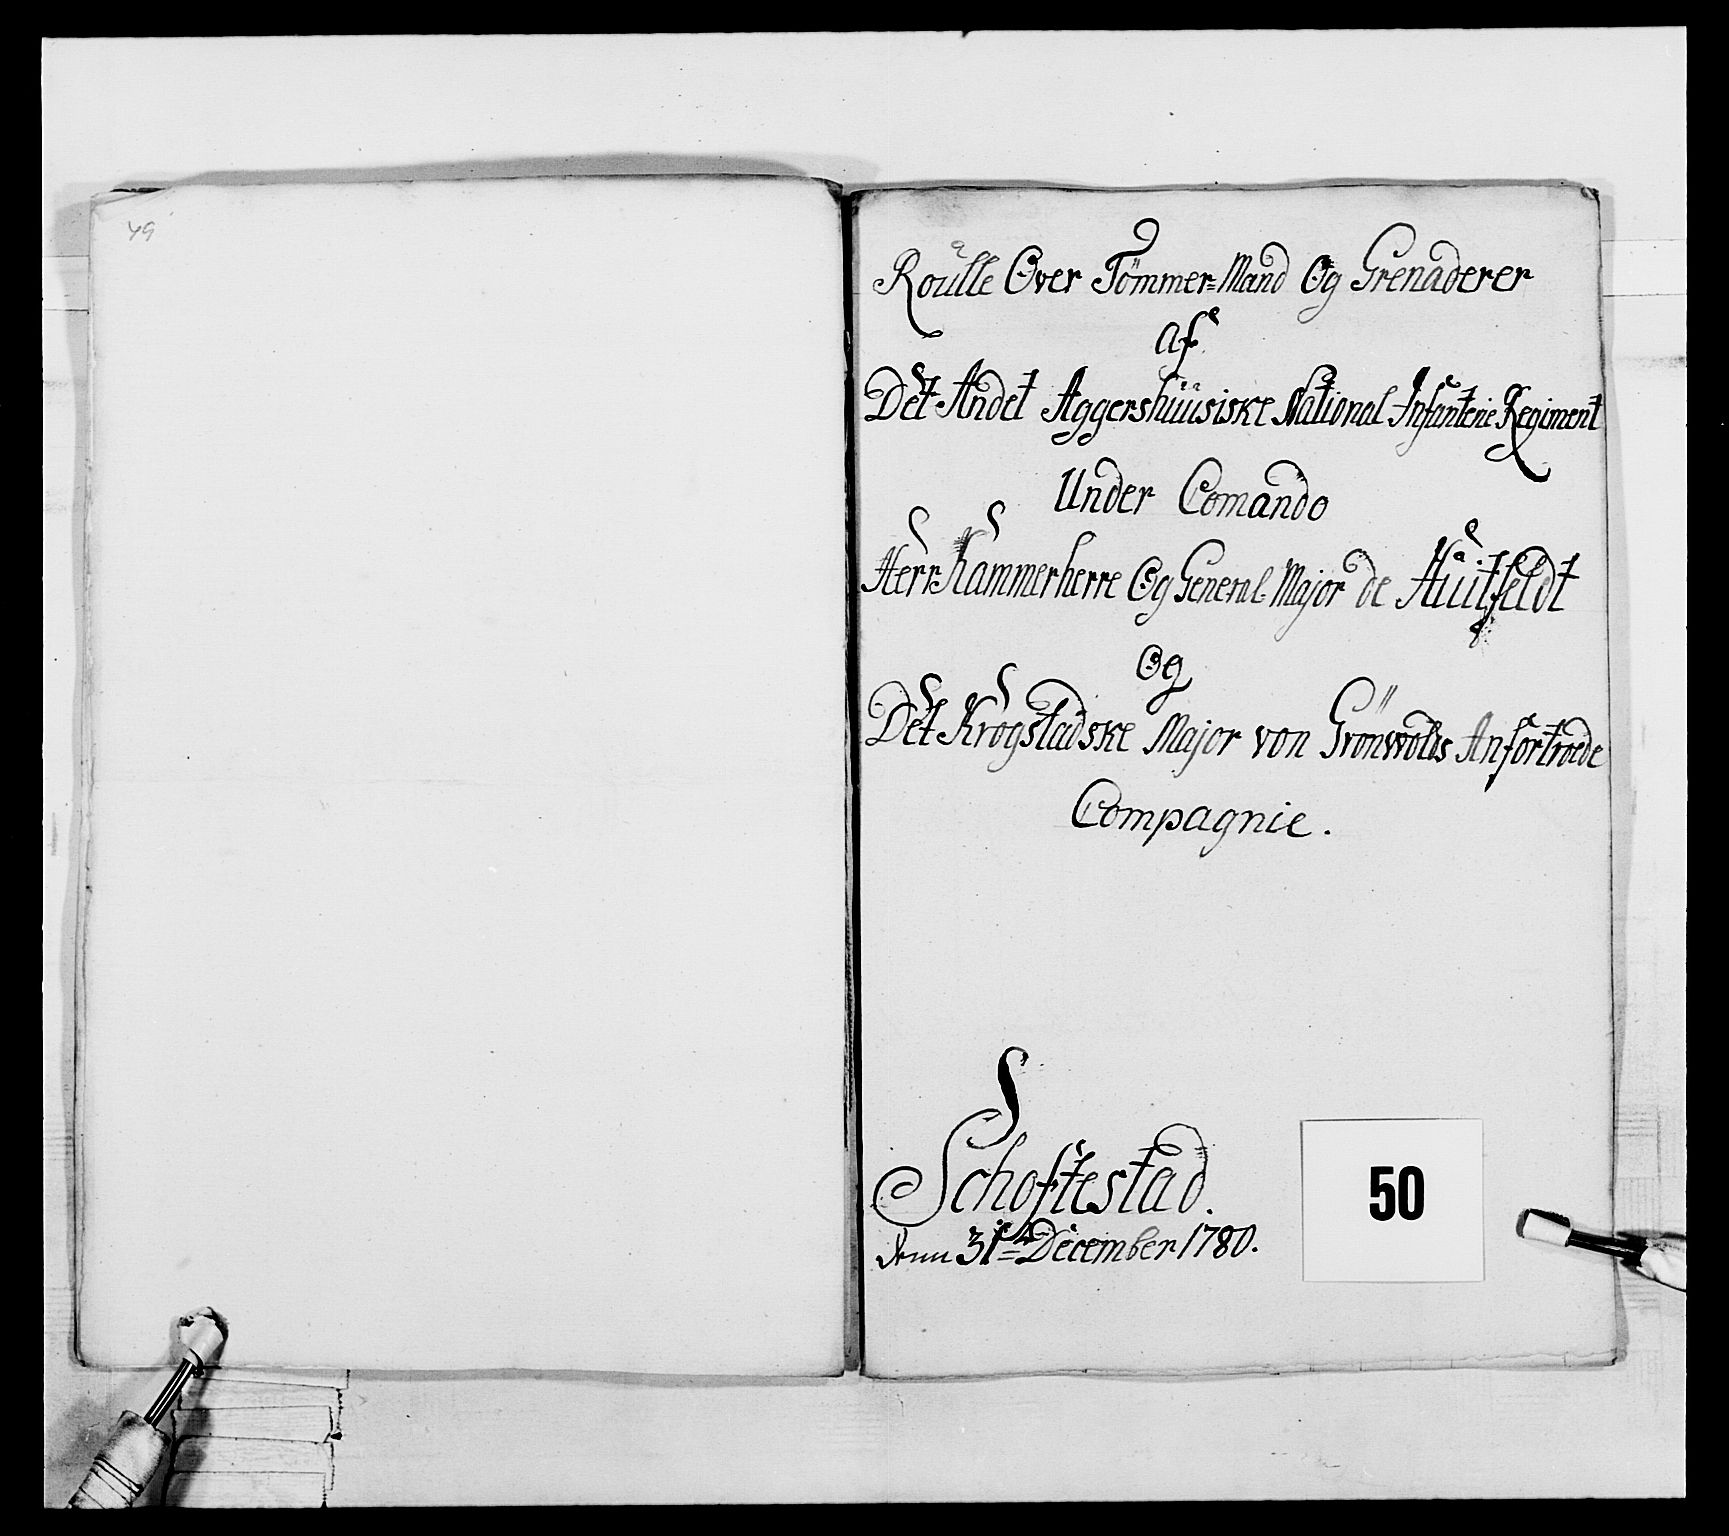 49
Roulle Over Tömmer=Mand Og Grenaderer
Af
Det Andet Aggershuusiske National Infanterie Regiment
Under Comando
Herr Kammerherre Og General Major de Huitfeldt
Og
Det Krogstadske Major von Grönwolds Anfortroede
Compagnie.
Schoftestad.
50
31te December 1780.